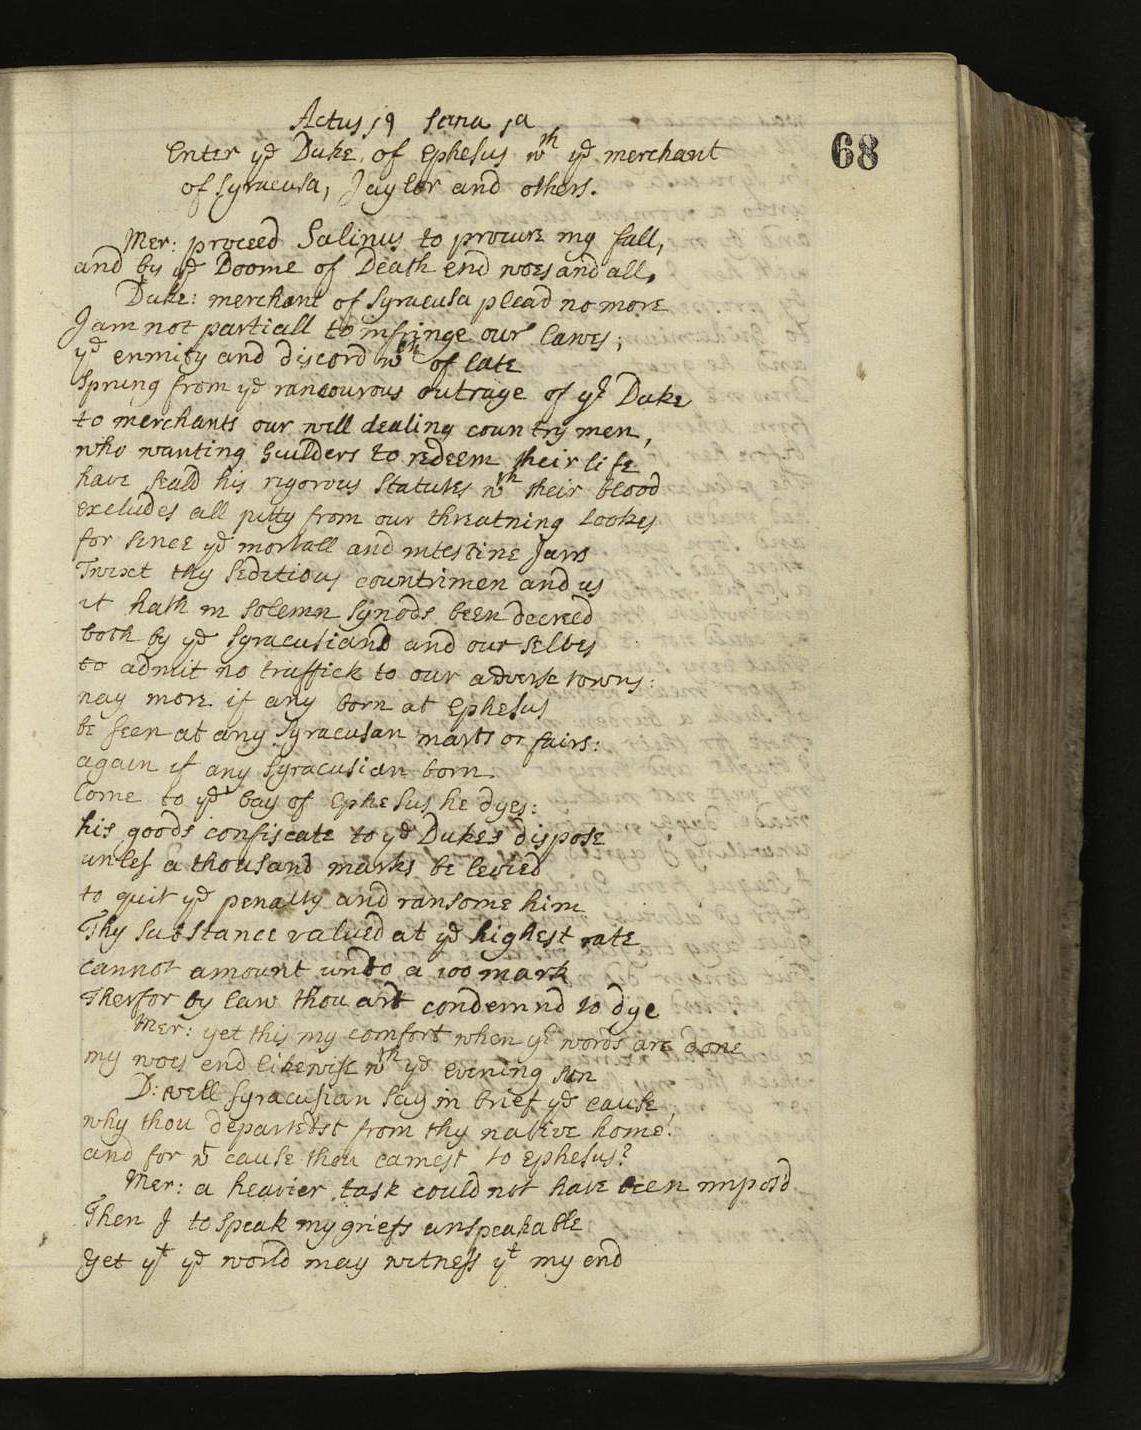 Actus 19 Scena 1a
68
Enter ye Duke of Ephesus wth ye merchant
of Syracusa, Jaylor and others.
Mer: proceed Salinus to procure my fall,
and by ye Doome of Death end woes and all,
Duke: merchant of Syracusa plead no more
I am not partiall to infringe our lawes;
ye enmity and discord wch of late
Sprung from ye rancourous outrage of yr Duke
to merchants our well dealing country men,
who wanting Guilders to redeem their life
have seald his rigorous statutes wth their blood
excludes all pitty from our threatning lookes
for since ye mortall and intestine Jarrs
Twixt thy seditious countrimen and us
it hath in solemn synods been decreed
both by ye Syracusians and our selves
to admit no traffick to our adverse towns:
nay more if any born at Ephesus
be seen at any Syracusan marts or fairs:
again if any Syracusian born
Come to ye bay of Ephesus he dyes:
his goods confiscate to ye Dukes dispose
unless a thousand marks be levied
to quit ye penalty and ransome him
Thy substance valued at ye highest rate
cannot amount unto a 100 mark
Therfor by law thou art condemnd to dye
Mer: yet this my comfort when yr words are done
my woes end likewise wth ye evening sun
D: well Syracusian say in brief ye cause
why thou departedst from thy native home!
and for wt cause thou camest to Ephesus?
Mer: a heavier task could not have been imposd
Then I to speak my griefs unspeakable
Yet yt ye world may witness yt my end